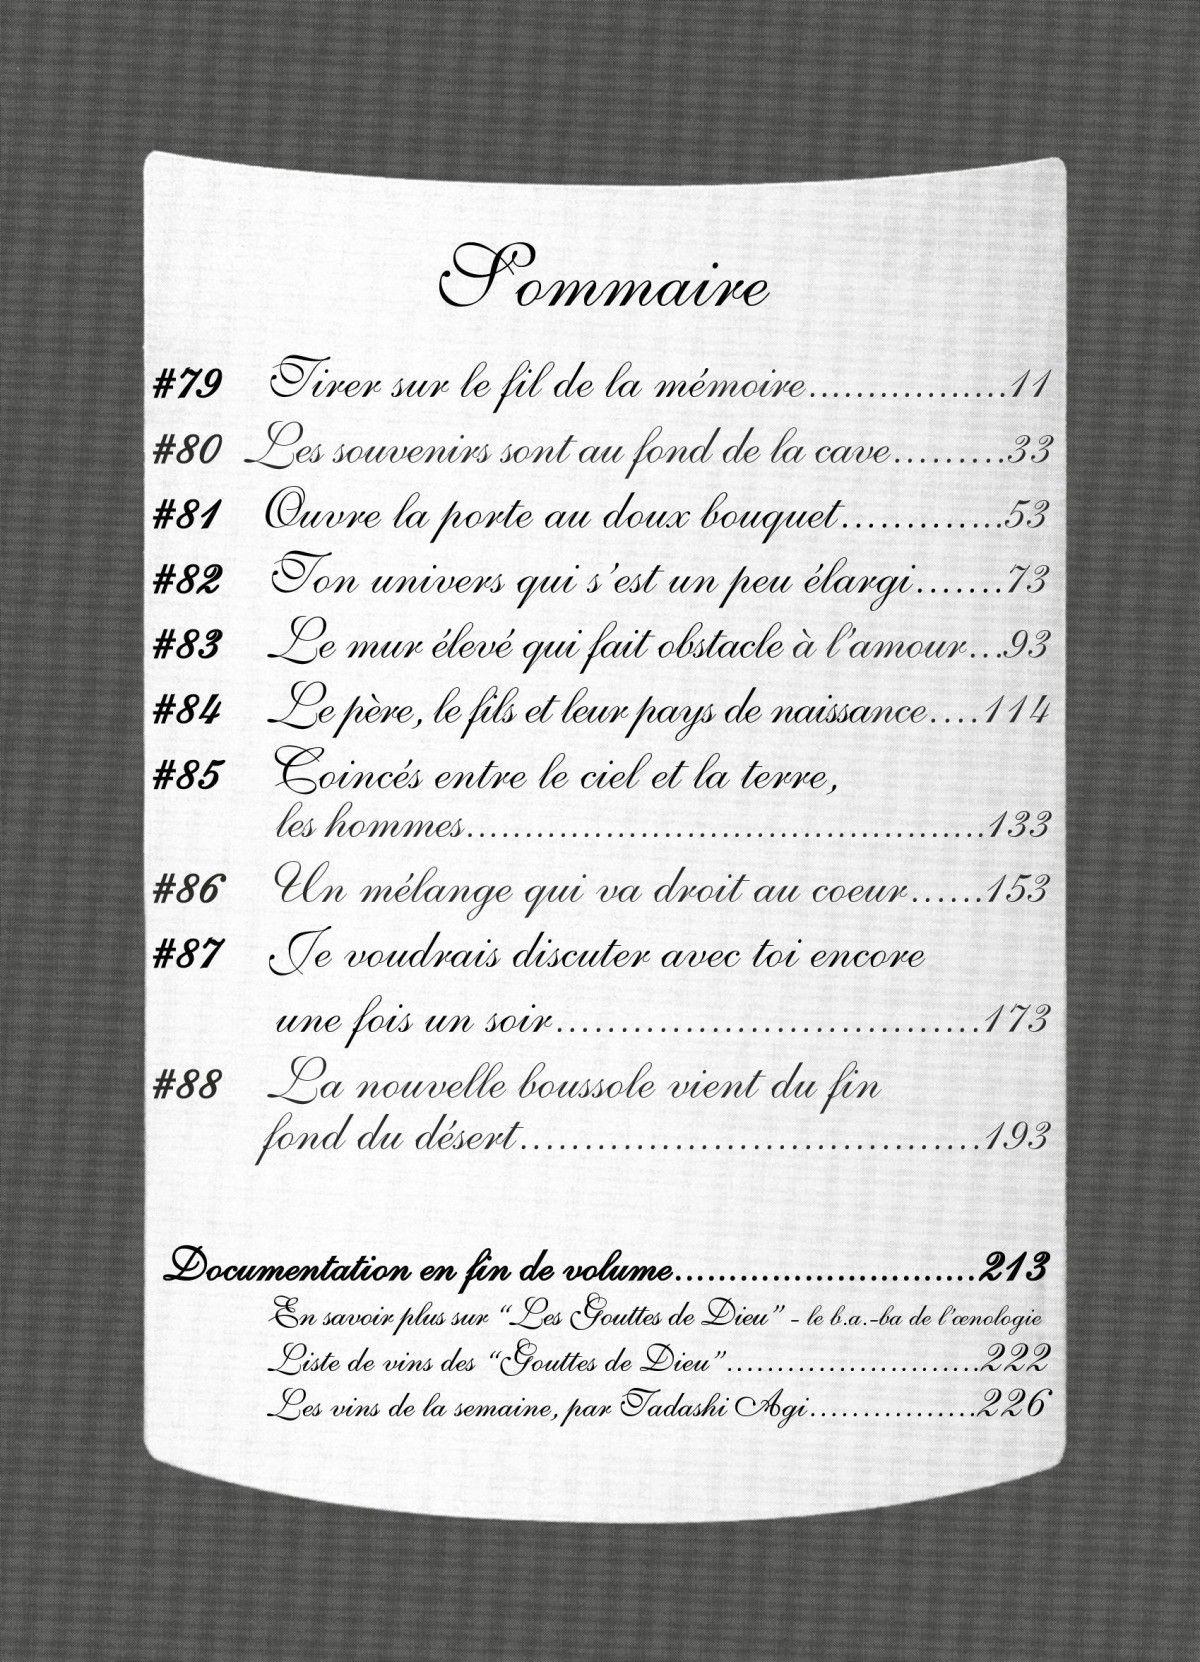 Sommaire
#79 Tirer sur le fil de la mémoire.................11
#80 Les souvenirs sont au fond de la cave.........33
#81 Ouvre la porte au doux bouquet.............53
#82 Ton univers qui s'est un peu élargi.......73
#83 Le mur élevé qui fait obstacle à l'amour...93
#84 Le père, le fils et leur pays de naissance....114
#85 Coincés entre le ciel et la terre,
les hommes...........................................133
#86 Un mélange qui va droit au coeur......153
#87 Je voudrais discuter avec toi encore
une fois un soir.................................173
#88 La nouvelle boussole vient du fin
fond du désert....................................193
Documentation en fin de volume............................213
En savoir plus sur “Les Gouttes de Dieu” - le b.a.-ba de l'œnologie
Liste de vins des “Gouttes de Dieu”.........................222
Les vins de la semaine, par Tadashi Agi................226